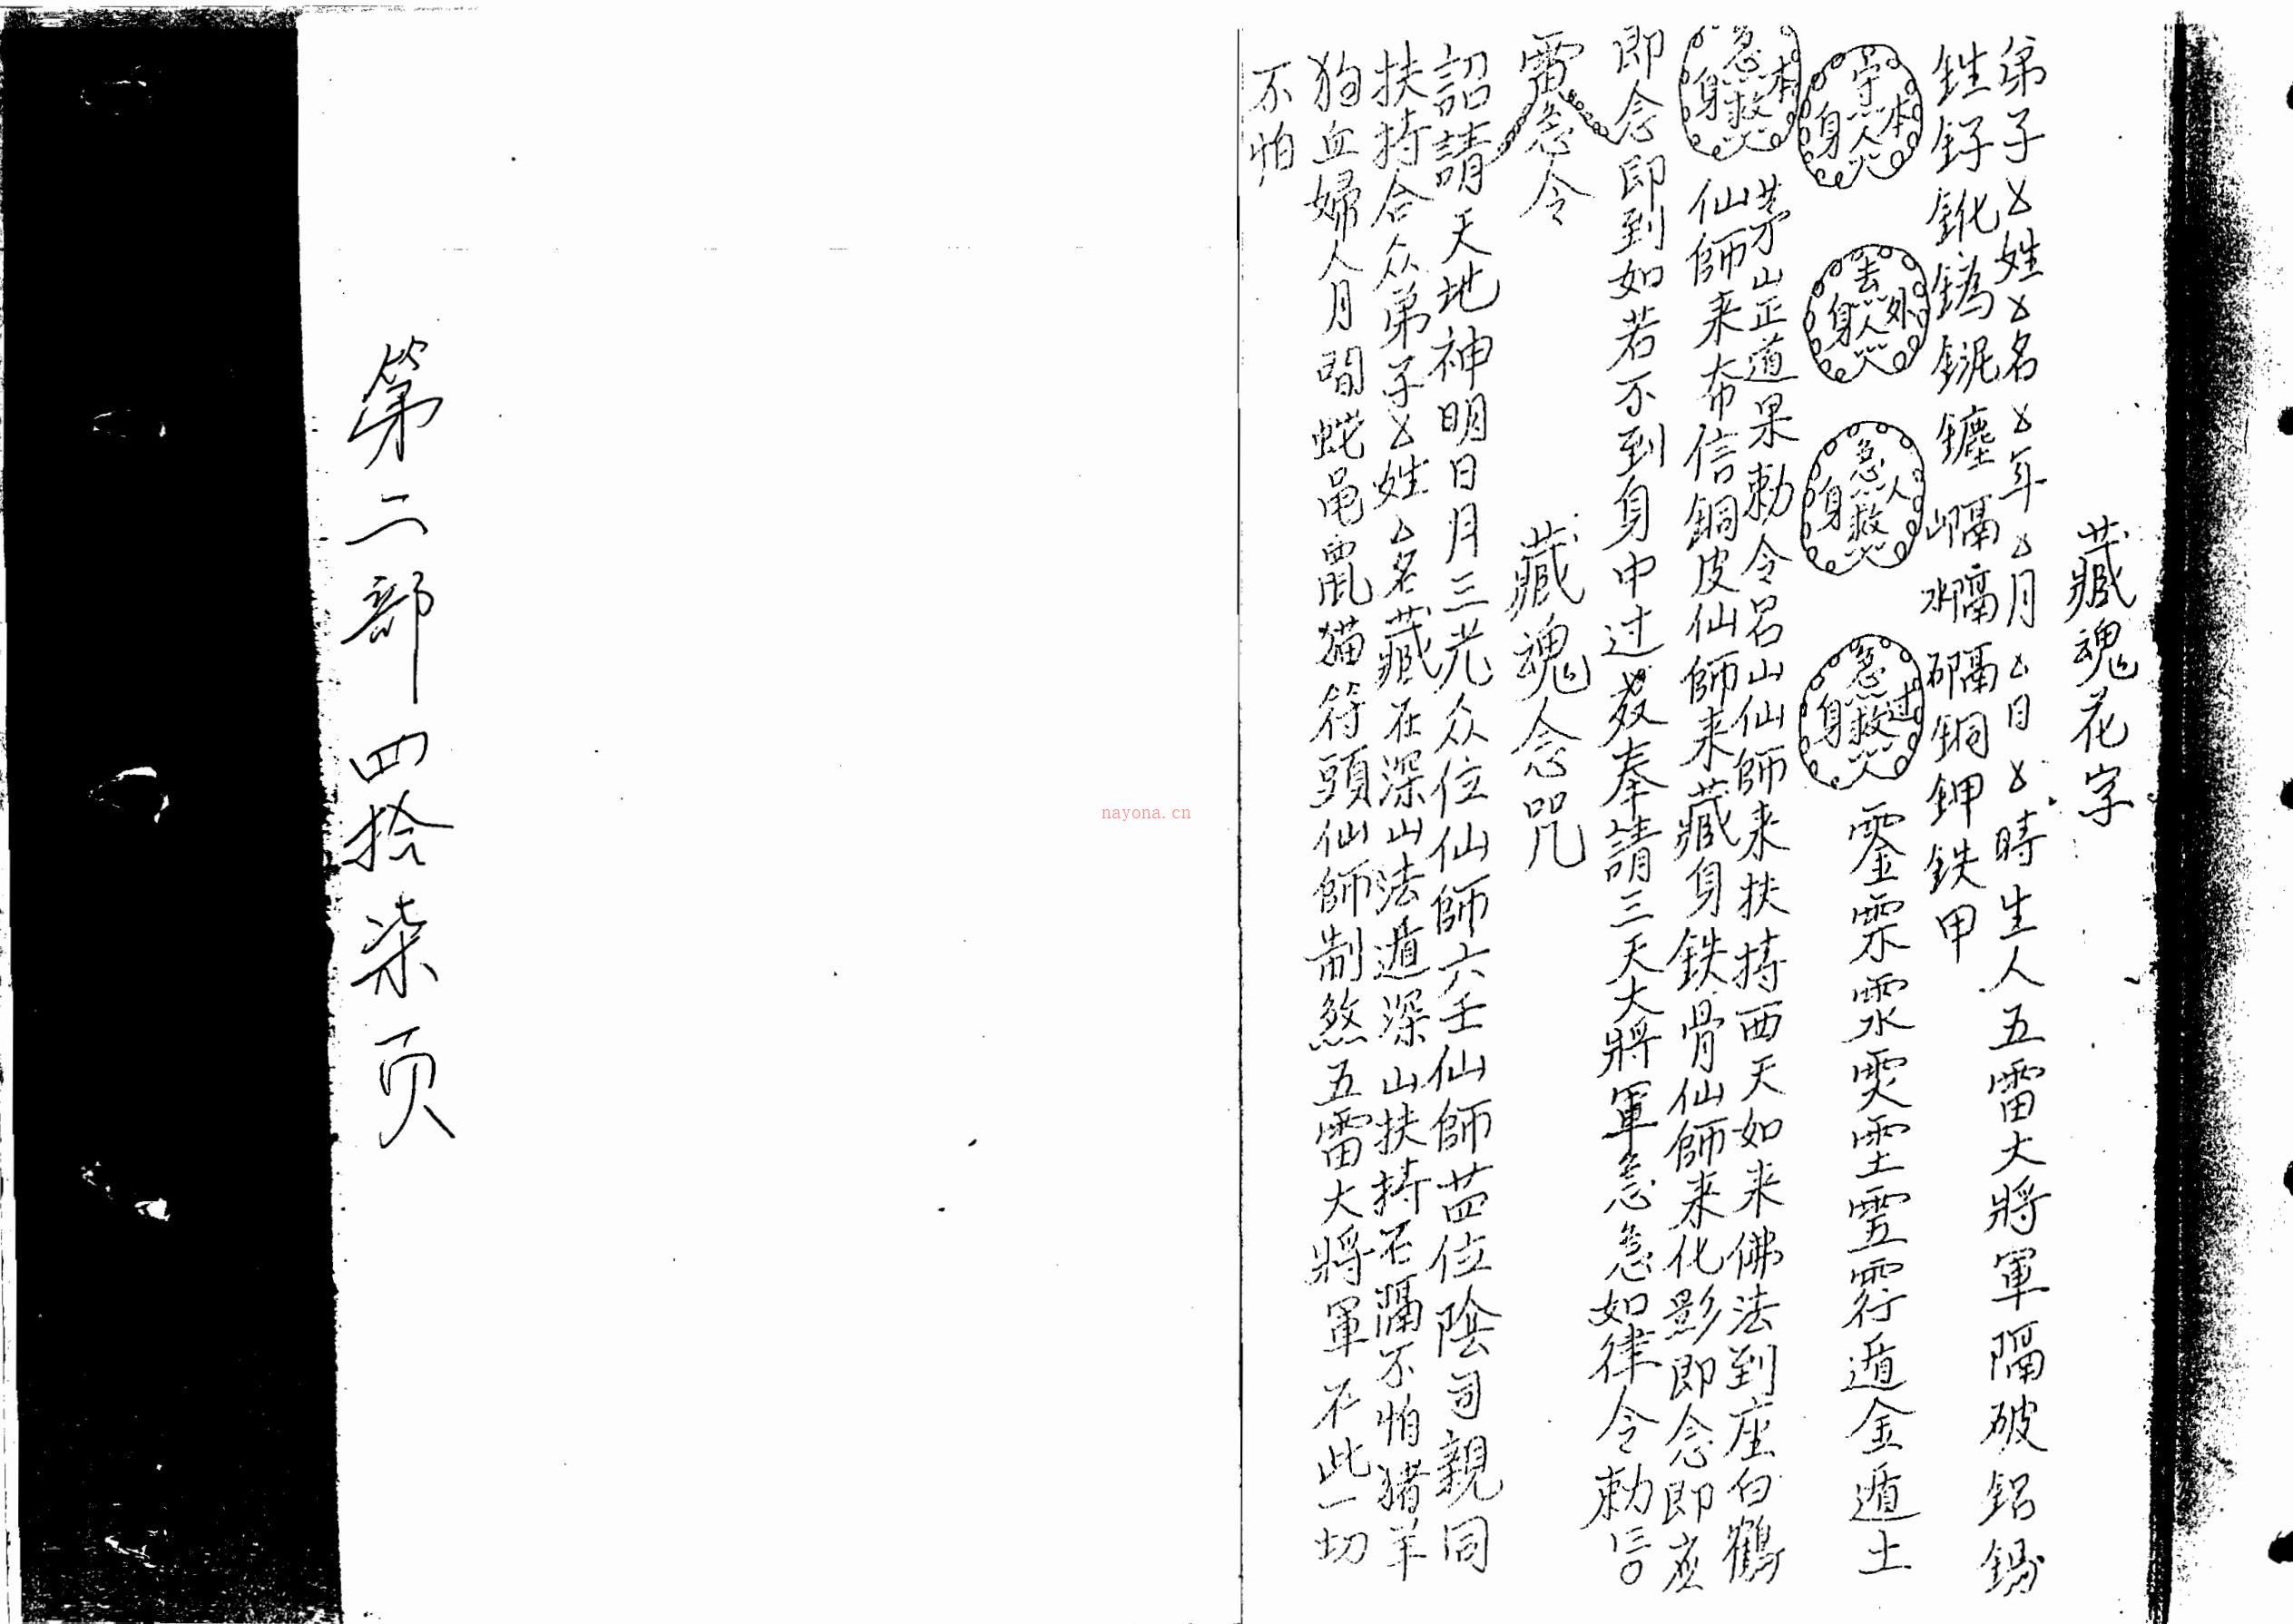 藏魂花字
弟子厶姓厶名厶年厶月厶日厶時生人五雷大將軍隔破鋁錫
鉎釨鈋鎢鈮鏖 隔 隔 隔銅鉀鉄甲
守本身人
去外身人
急救人身
急救过身
遁金遁土
急救本身
茅山正道果勅令呂山仙師来扶持西天如来佛法到座白鶴
仙師来布信銅皮仙師来藏身鉄骨仙師来化影即念即应
即念即到如若不到身中过 奉請三天大將軍急急如律令勅
急令
藏魂念咒
詔請天地神明日月三光众位仙師六壬仙師 位陰司親同
扶持合众弟子厶姓厶名藏在深山法遁深山扶持石隔不怕猪羊
狗血婦人月間蛇黾鼠猫符頭仙師制煞五雷大將軍不此一切
不怕
第二部四拾柒页
nayona.cn